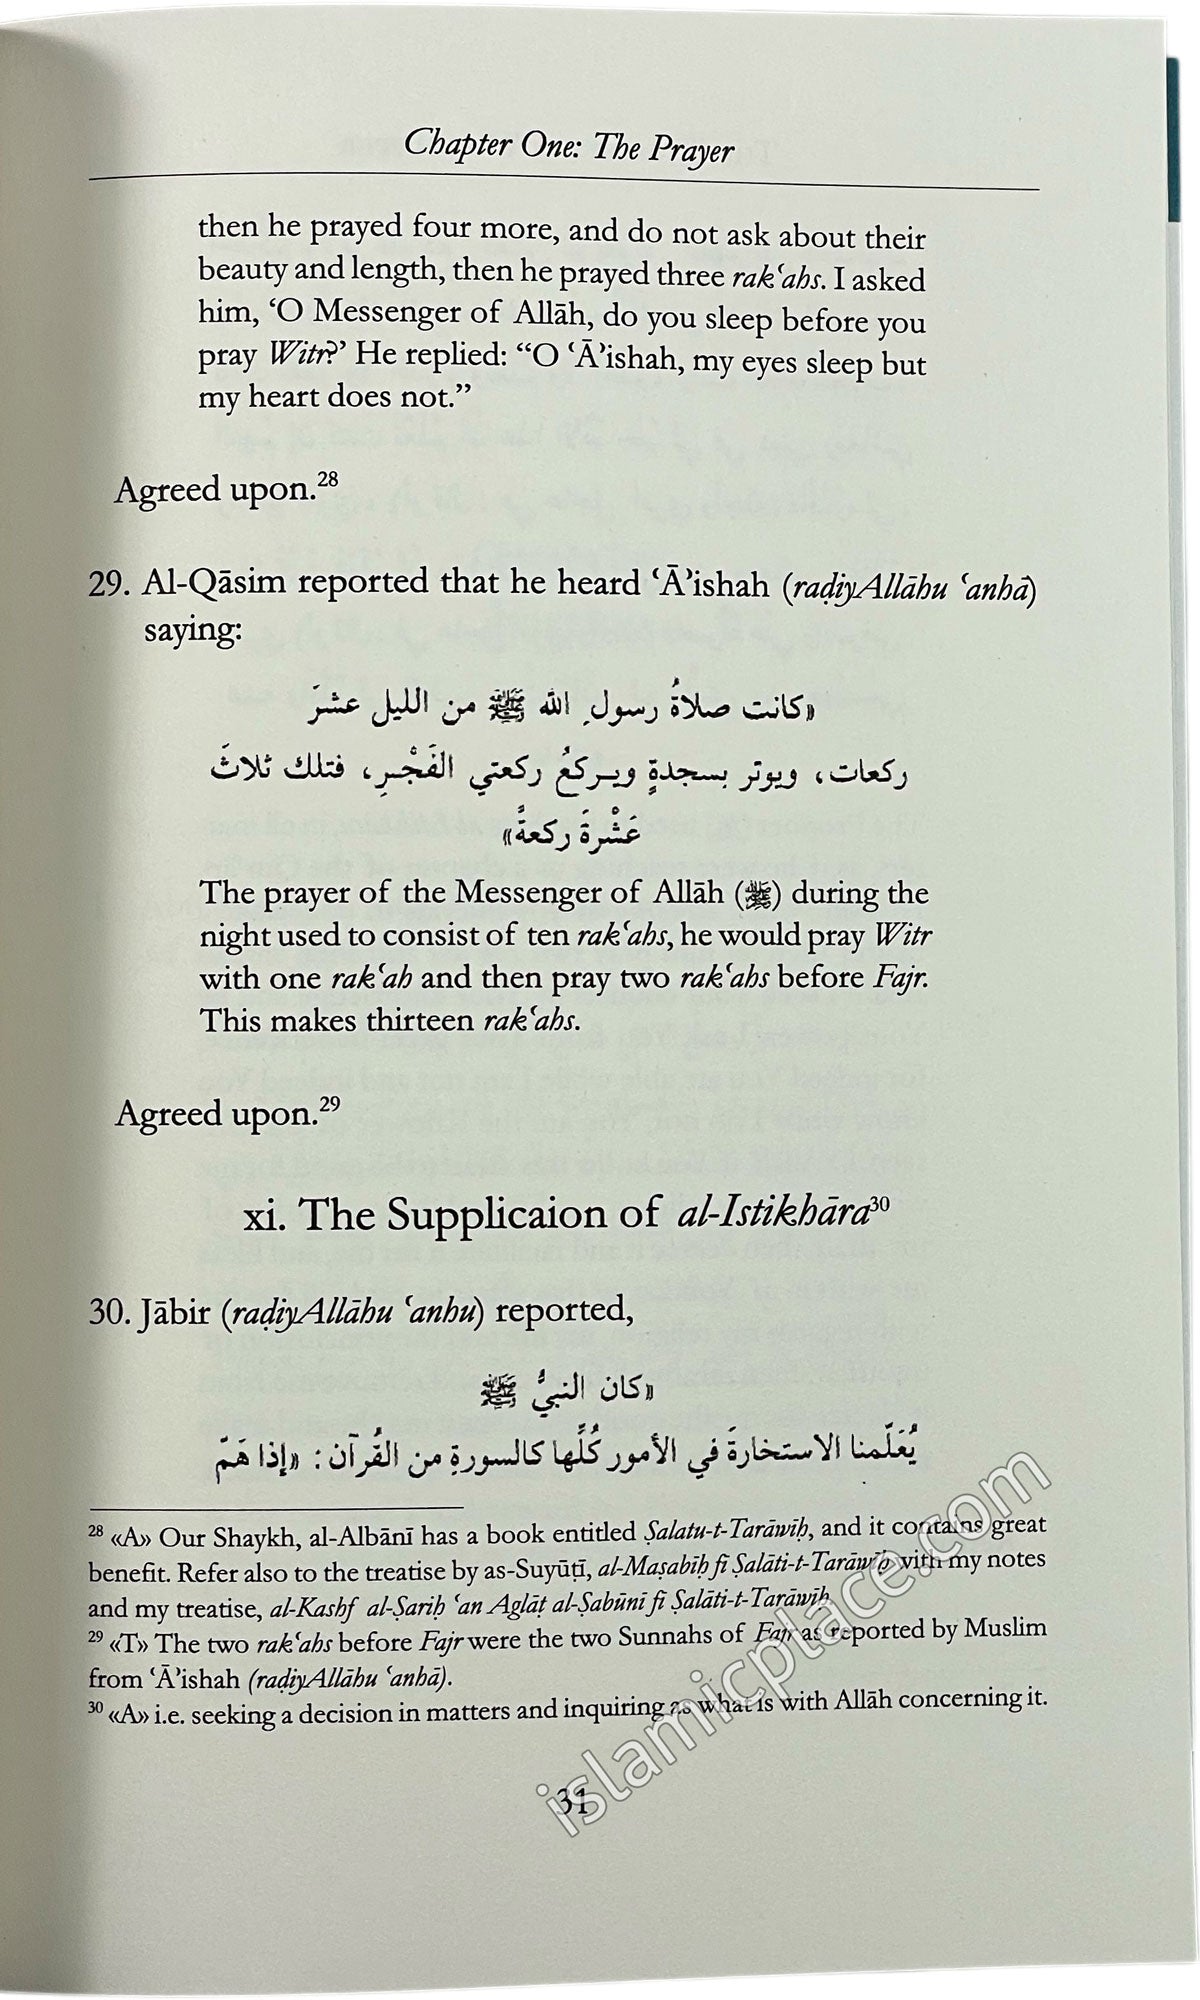 Chapter One: The Prayer
then he prayed four more, and do not ask about their
beauty and length, then he prayed three rak‘ahs. I asked
him, ‘O Messenger of Allāh, do you sleep before you
pray Witr?’ He replied: “O ‘Ā’ishah, my eyes sleep but
my heart does not.”
Agreed upon.28
29. Al-Qāsim reported that he heard ‘Ā’ishah (raḍiyAllāhu ‘anhā)
saying:
«كانت صلاةُ رسولِ الله ﷺ من الليل عشرَ
ركعات، ويوتر بسجدةٍ ويركعُ ركعتي الفَجْرِ، فتلك ثلاثَ
عَشْرةَ ركعةً»
The prayer of the Messenger of Allāh (ﷺ) during the
night used to consist of ten rak‘ahs, he would pray Witr
with one rak‘ah and then pray two rak‘ahs before Fajr.
This makes thirteen rak‘ahs.
Agreed upon.29
xi. The Supplicaion of al-Istikhāra30
30. Jābir (raḍiyAllāhu ‘anhu) reported,
«كان النبيُّ ﷺ
يُعَلّمنا الاستخارةَ في الأمور كُلِّها كالسورةِ من القُرآن: «إذا هَمّ
28 «A» Our Shaykh, al-Albānī has a book entitled Ṣalatu-t-Tarāwīḥ, and it contains great
benefit. Refer also to the treatise by as-Suyūṭī, al-Maṣabīḥ fī Ṣalāti-t-Tarāwīḥ with my notes
and my treatise, al-Kashf al-Ṣariḥ ‘an Aglāṭ al-Ṣabūnī fī Ṣalāti-t-Tarāwīḥ.
29 «T» The two rak‘ahs before Fajr were the two Sunnahs of Fajr as reported by Muslim
from ‘Ā’ishah (raḍiyAllāhu ‘anhā).
30 «A» i.e. seeking a decision in matters and inquiring as what is with Allāh concerning it.
31
islamicplace.com